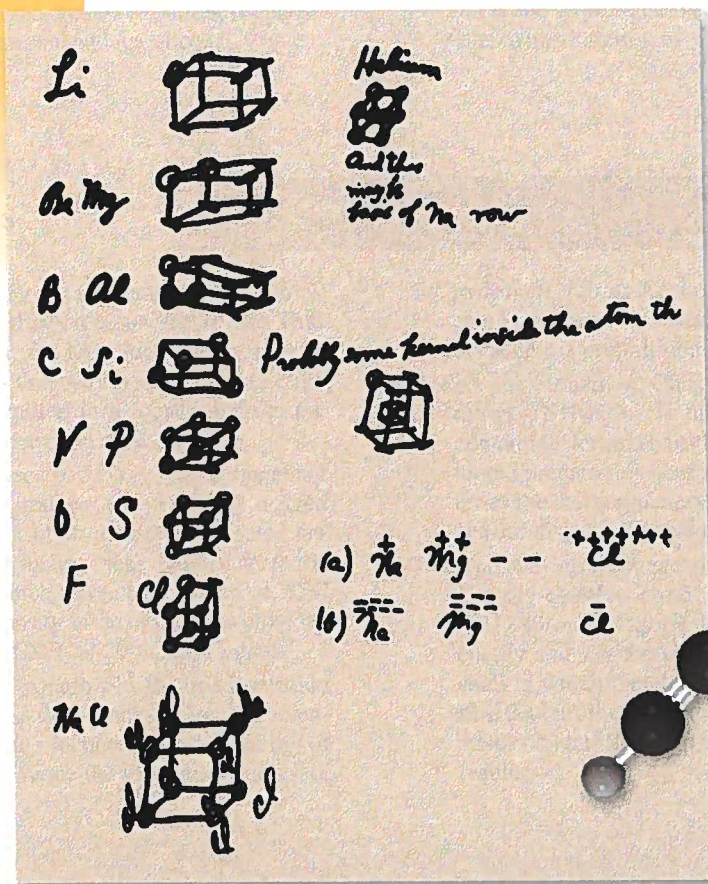 Li
Helium
And this
may be
of Na row
Be Mg
B Al
C Si
Probably some kernel inside the atom th
N P
O S
F Cl
+ ++ +++++++
(a) Na Mg - - Cl
(b) Na Mg Cl
Na Cl